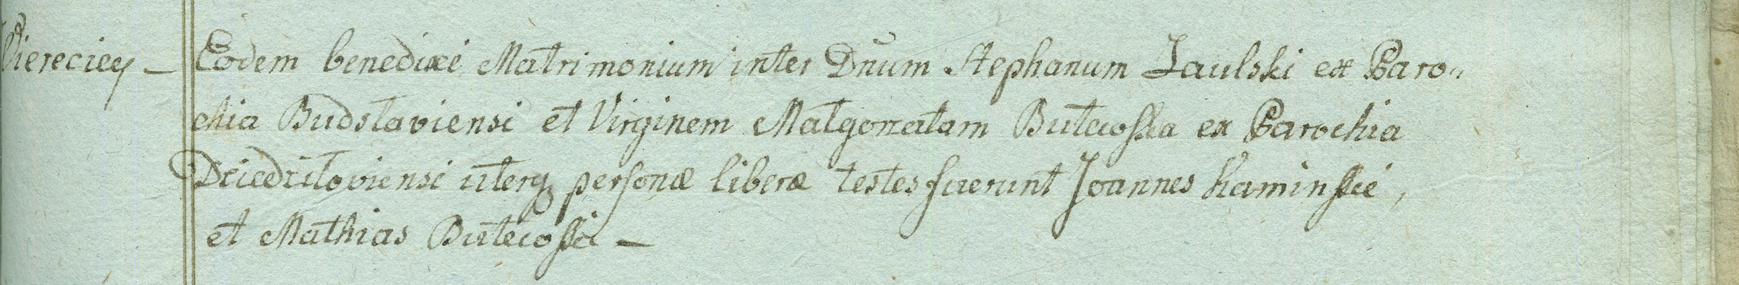 Viereciey — Eodem benedixi Matrimonium inter Dnum Stephanum Jaulski ex Paro-
chia Budslaviensi et Virginem Malgorzatam Butecoska ex Parochia
Dziedziloviensi uterq personæ liberæ testes fuerunt Joannes Kaminski,
et Mathias Butecoski —